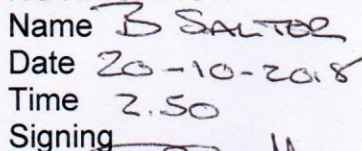 Name B SALTER
Date 20-10-2018
Time 2.50
Signing